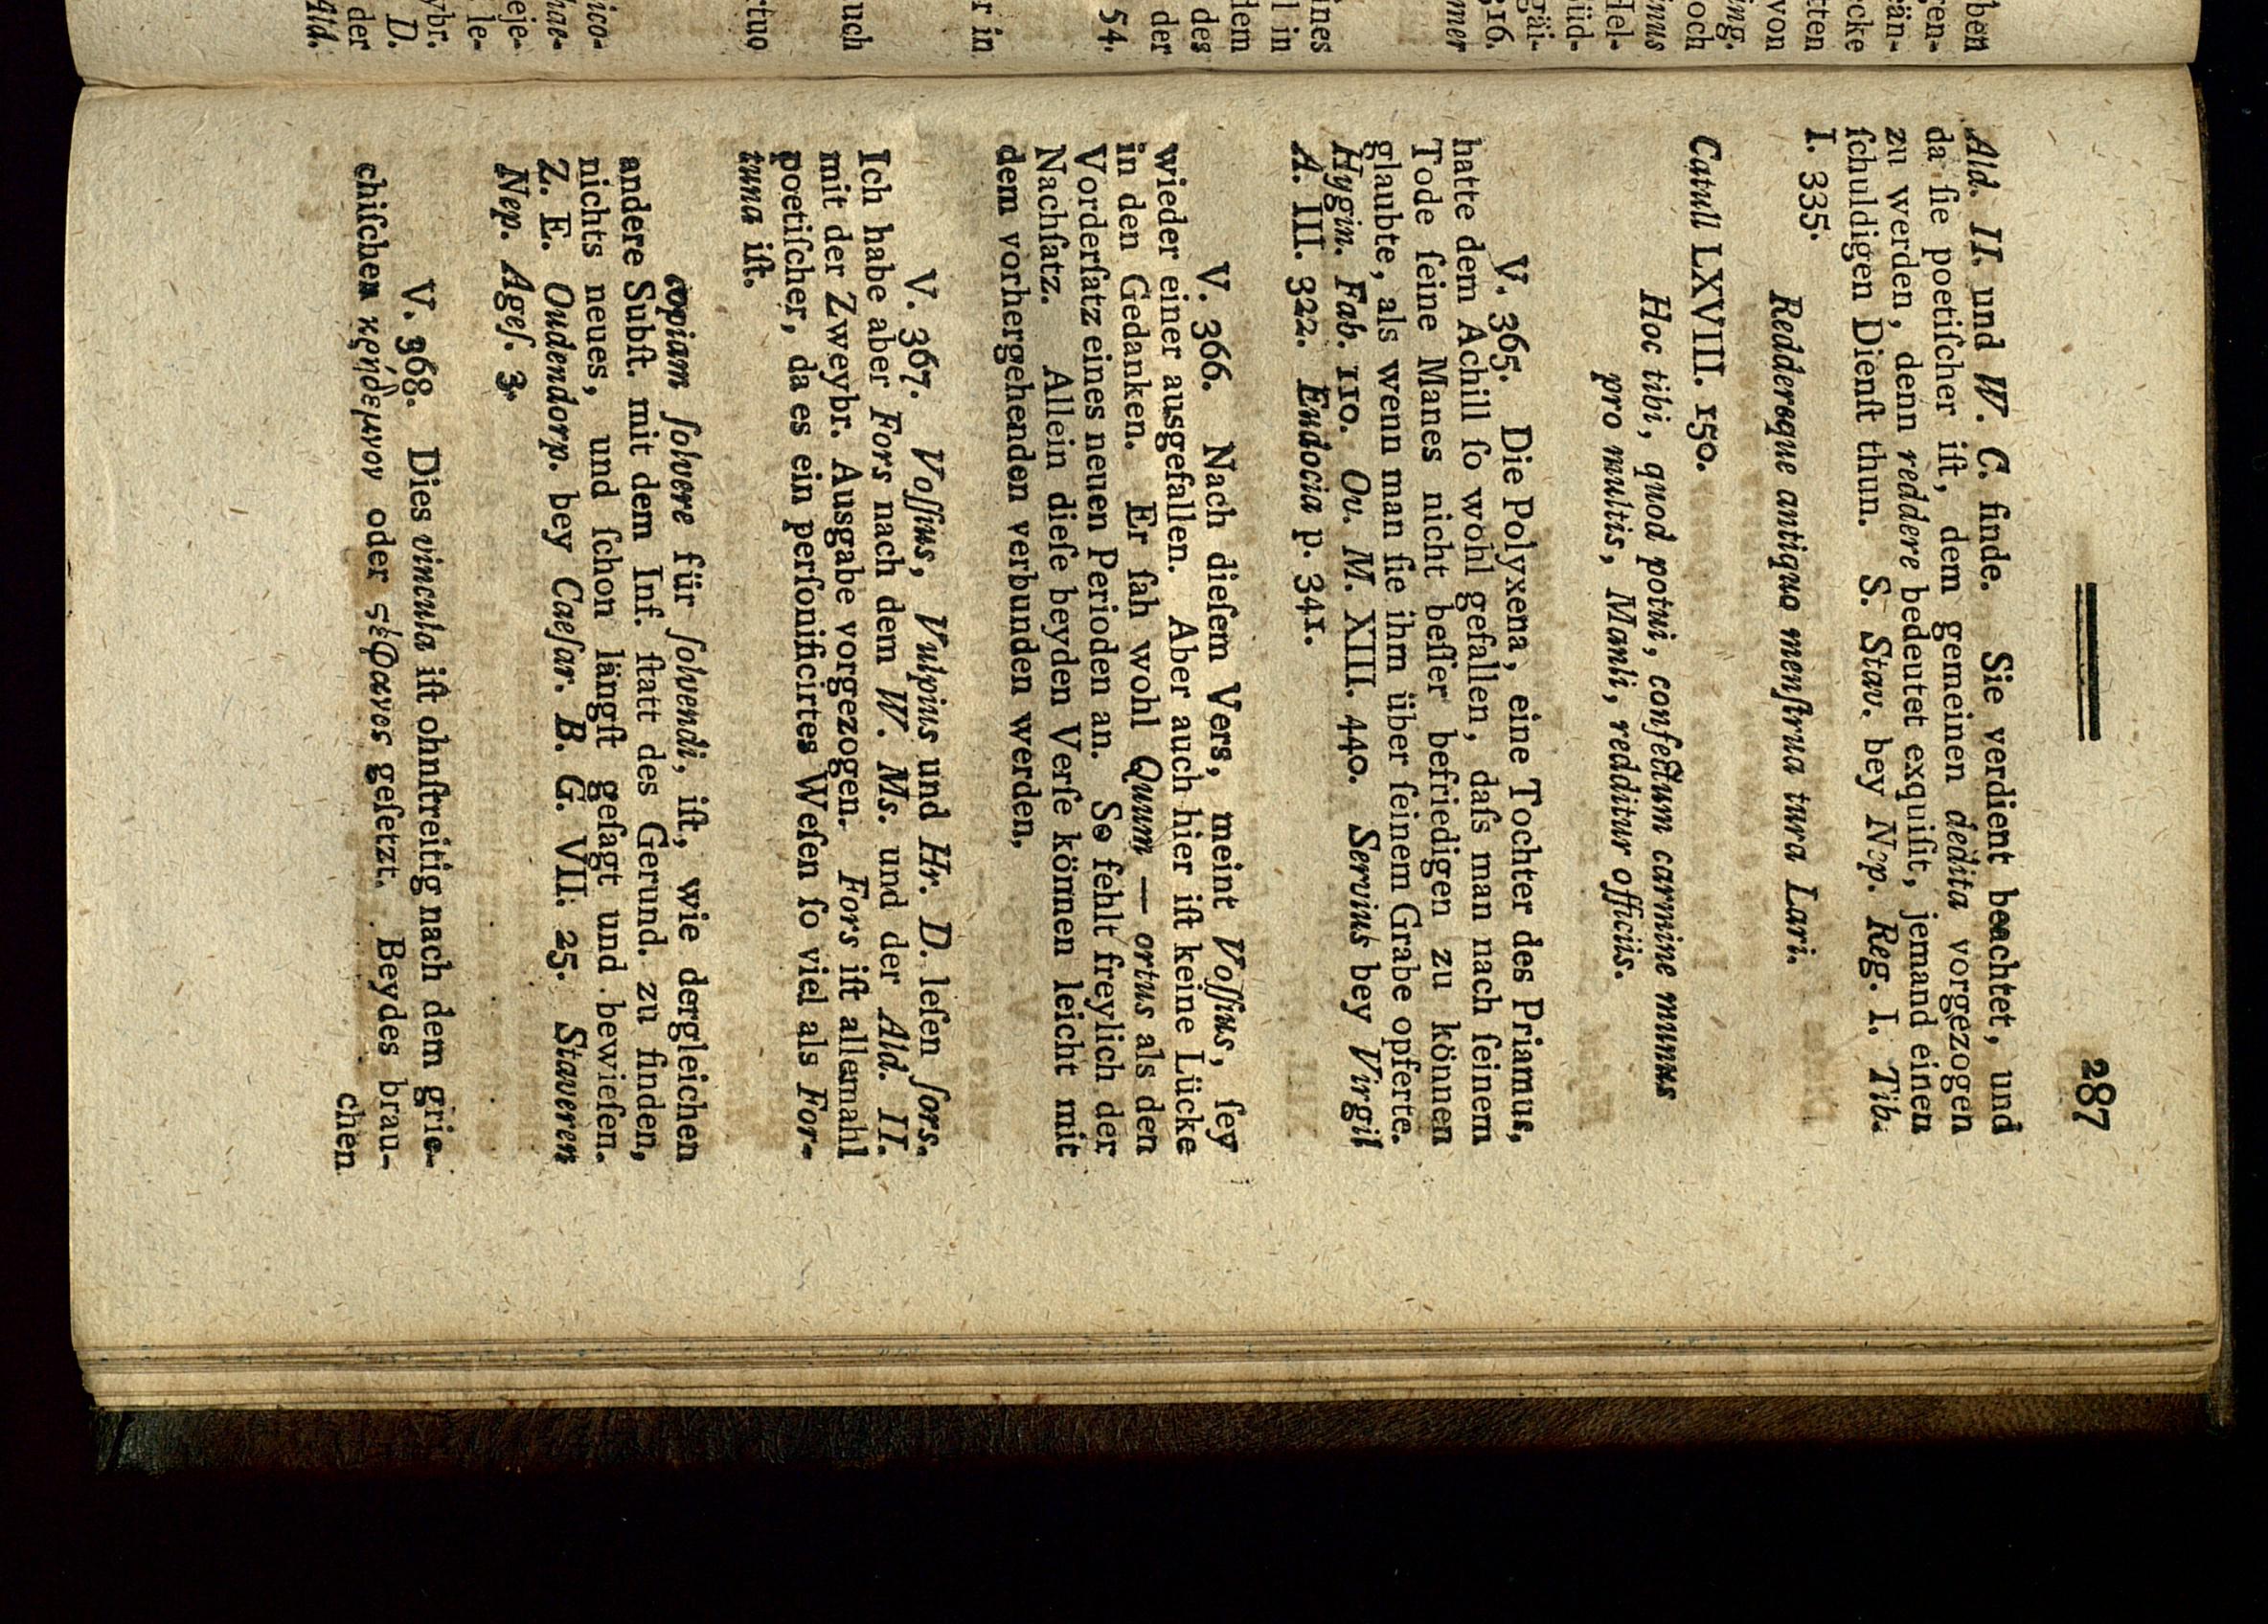 287
Ald. II. und W. C. finde. Sie verdient beachtet, und
da ſie poetiſcher iſt, dem gemeinen dedita vorgezogen
zu werden, denn reddere bedeutet exquiſit, jemand einen
ſchuldigen Dienſt thun. S. Stav. bey Nep. Reg. I. Tib.
I. 335.
Reddereque antiquo menſtrua tura Lari.
Catull LXVIII. 150.
Hoc tibi, quod potui, confectum carmine munus
pro multis, Manli, redditur officiis.
V. 365. Die Polyxena, eine Tochter des Priamus,
hatte dem Achill ſo wohl gefallen, daſs man nach ſeinem
Tode ſeine Manes nicht beſſer befriedigen zu können
glaubte, als wenn man ſie ihm über ſeinem Grabe opferte.
Hygin. Fab. 110. Ov. M. XIII. 440. Servius bey Virgil
A. III. 322. Eudocia p. 341.
V. 366. Nach dieſem Vers, meint Voſſius, ſey
wieder einer ausgefallen. Aber auch hier iſt keine Lücke
in den Gedanken. Er ſah wohl Quum — ortus als den
Vorderſatz eines neuen Perioden an. So fehlt freylich der
Nachſatz. Allein dieſe beyden Verſe können leicht mit
dem vorhergehenden verbunden werden,
V. 367. Voſſius, Vulpius und Hr. D. leſen ſors.
Ich habe aber Fors nach dem W. Ms. und der Ald. II.
mit der Zweybr. Ausgabe vorgezogen. Fors iſt allemahl
poetiſcher, da es ein perſonificirtes Weſen ſo viel als For-
tuna iſt.
copiam ſolvere für ſolvendi, iſt, wie dergleichen
andere Subſt. mit dem Inf. ſtatt des Gerund. zu finden,
nichts neues, und ſchon längſt geſagt und bewieſen.
Z. E. Oudendorp. bey Caeſar. B. G. VII. 25. Staveren
Nep. Ageſ. 3.
V. 368. Dies vincula iſt ohnſtreitig nach dem grie-
chiſchen κρήδεμνον oder ςέφανος geſetzt. Beydes brau-
chen